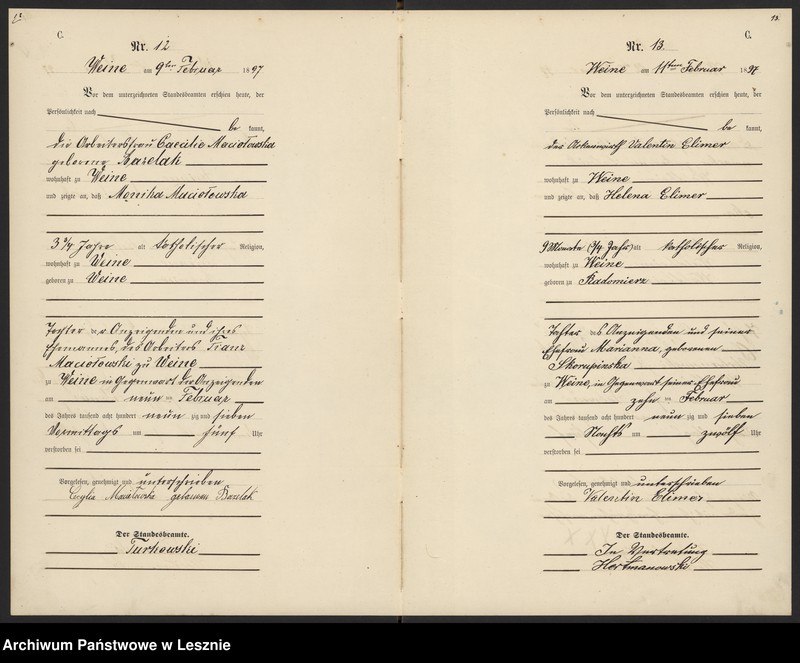 12
C.
Nr. 12
Weine am 9ten Februar 1897
Vor dem unterzeichneten Standesbeamten erschien heute, der
Persönlichkeit nach
be kannt,
die Arbeiterfrau Caecilie Maciołowska
geborene Bazelak
wohnhaft zu Weine
und zeigte an, daß Monika Maciołowska
3 1/4 Jahre alt katholischer Religion,
wohnhaft zu Weine
geboren zu Weine
Tochter der Anzeigenden und ihres
Ehemannes, des Arbeiters Franz
Maciołowski zu Weine
zu Weine in Gegenwart der Anzeigenden
am neun ten Februar
des Jahres tausend acht hundert neun zig und sieben
Vormittags um fünf Uhr
verstorben sei
Vorgelesen, genehmigt und unterschrieben
geborene Bazelak
Der Standesbeamte.
Turkowski
13.
C.
Nr. 13.
Weine am 11ten Februar 1897
Vor dem unterzeichneten Standesbeamten erschien heute, der
Persönlichkeit nach
be kannt,
der Ackerwirth Valentin Elimer
wohnhaft zu Weine
und zeigte an, daß Helena Elimer
9 Monate (3/4 Jahr) alt katholischer Religion,
wohnhaft zu Weine
geboren zu Radomierz
Tochter des Anzeigenden und seiner
Ehefrau Marianna, geborenen
Skorupinska
zu Weine, in Gegenwart seiner Ehefrau
am zehn ten Februar
des Jahres tausend acht hundert neun zig und sieben
Nachts um zwölf Uhr
verstorben sei
Vorgelesen, genehmigt und unterschrieben
Valentin Elimer
Der Standesbeamte.
In Vertretung
Hertmanowski
Archiwum Państwowe w Lesznie